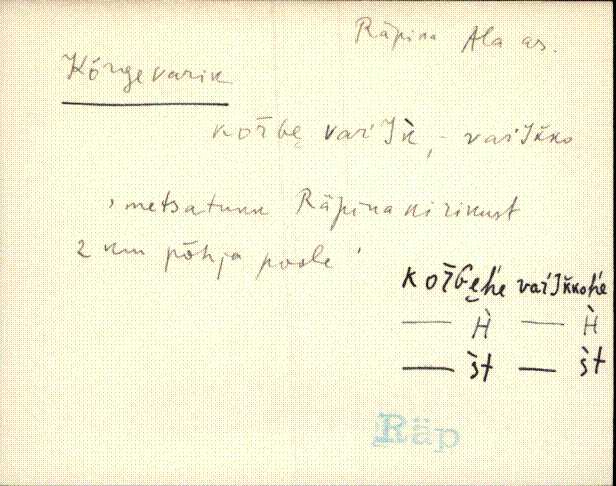 Räpina Ala as.
Kõrgevarik
kõr̄ʙe̮ var'Ik̀, - var'Ik̆ko
, metsatukk Räpina kirikust
2 km põhja poole '
kõr̄ʙe̮h́e var'Ik̆koh́e
— H̀ — H̀
— s̀t — s̀t
Räp